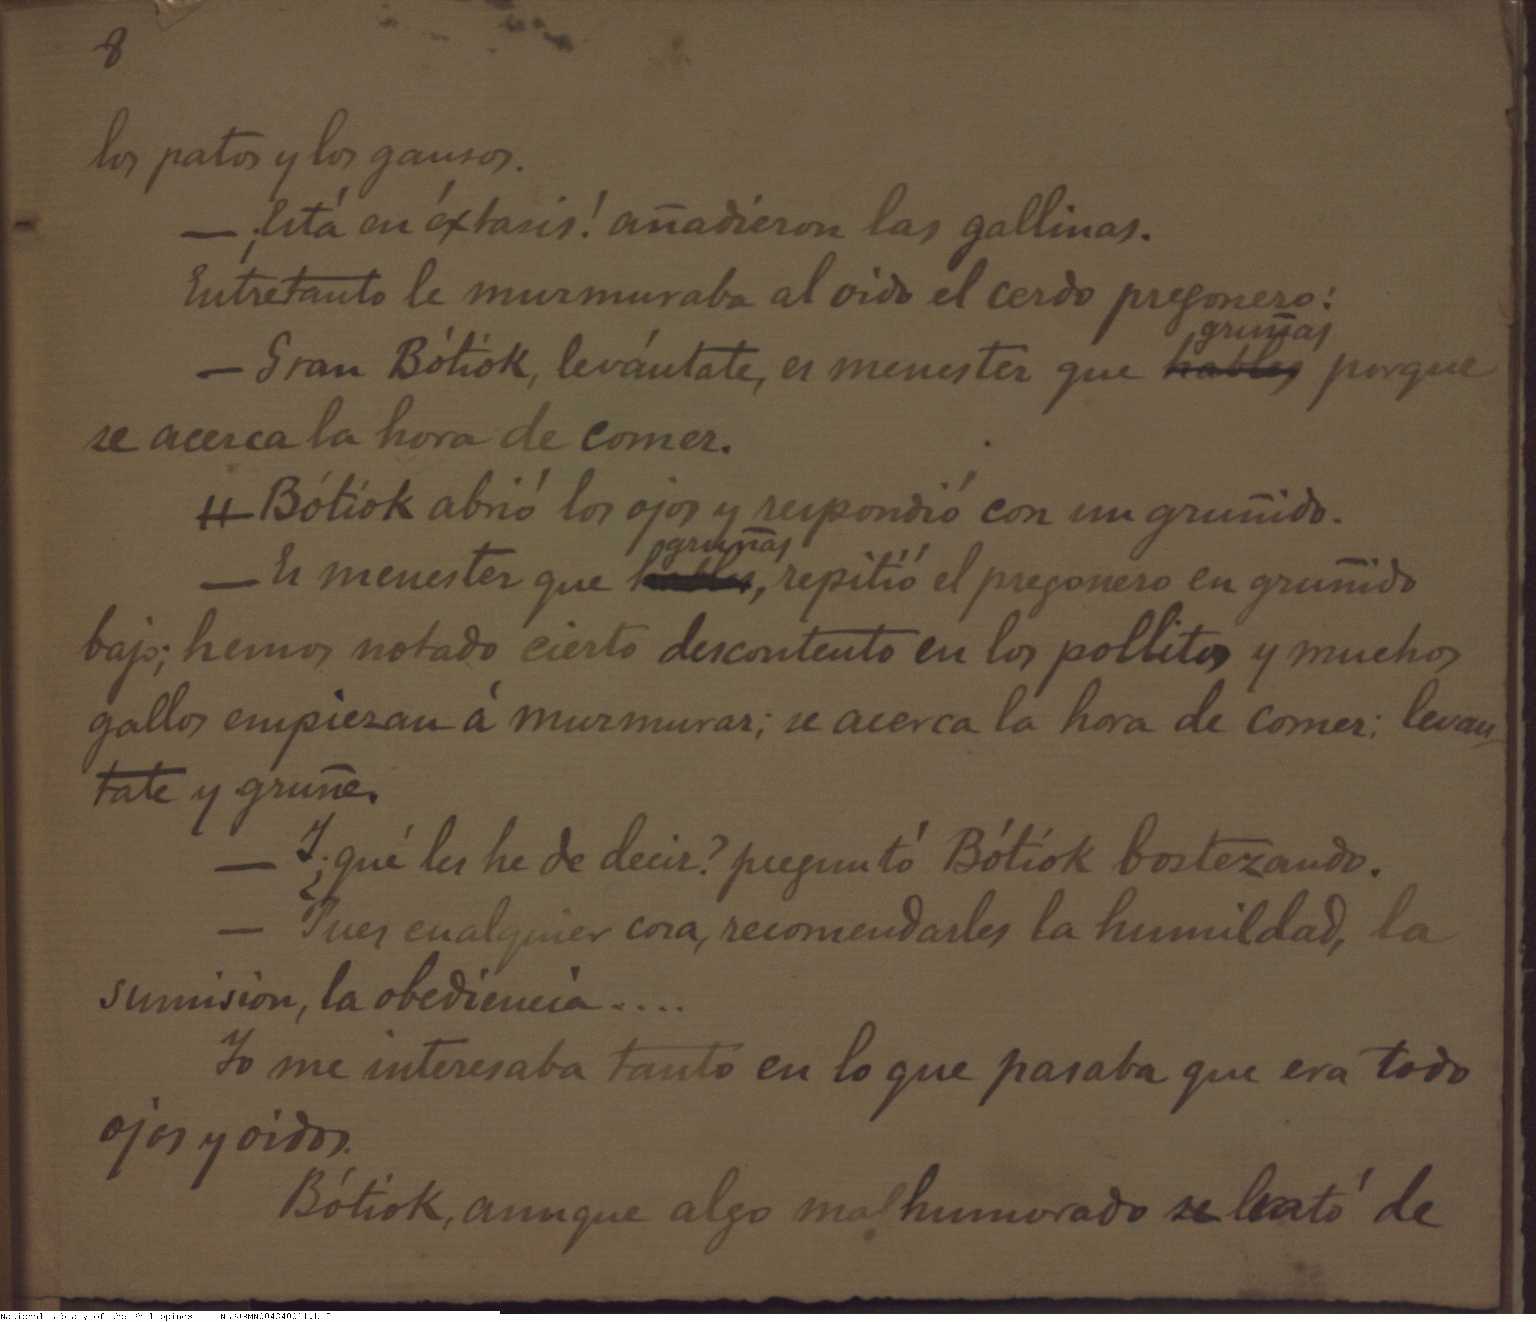 8
los patos y los gansos.
— ¡Está en éxtasis! añadieron las gallinas.
Entretanto le murmuraba al oido el cerdo pregonero:
gruñas
— Gran Bótiok, levántate, es menester que hables porque
se acerca la hora de comer.
Bótiok abrió los ojos y respondió con un gruñido.
gruñas
— Es menester que hables, repitió el pregonero en gruñido
bajo; hemos notado cierto descontento en los pollitos y muchos
gallos empiezan á murmurar; se acerca la hora de comer; levan-
tate y gruñe.
— Y ¿qué les he de decir? preguntó Bótiok bostezando.
— Pues cualquier cosa, recomendarles la humildad, la
sumision, la obediencia....
Yo me interesaba tanto en lo que pasaba que era todo
ojos y oidos.
Bótiok, aunque algo mal humorado se de
National Library of the Philippines